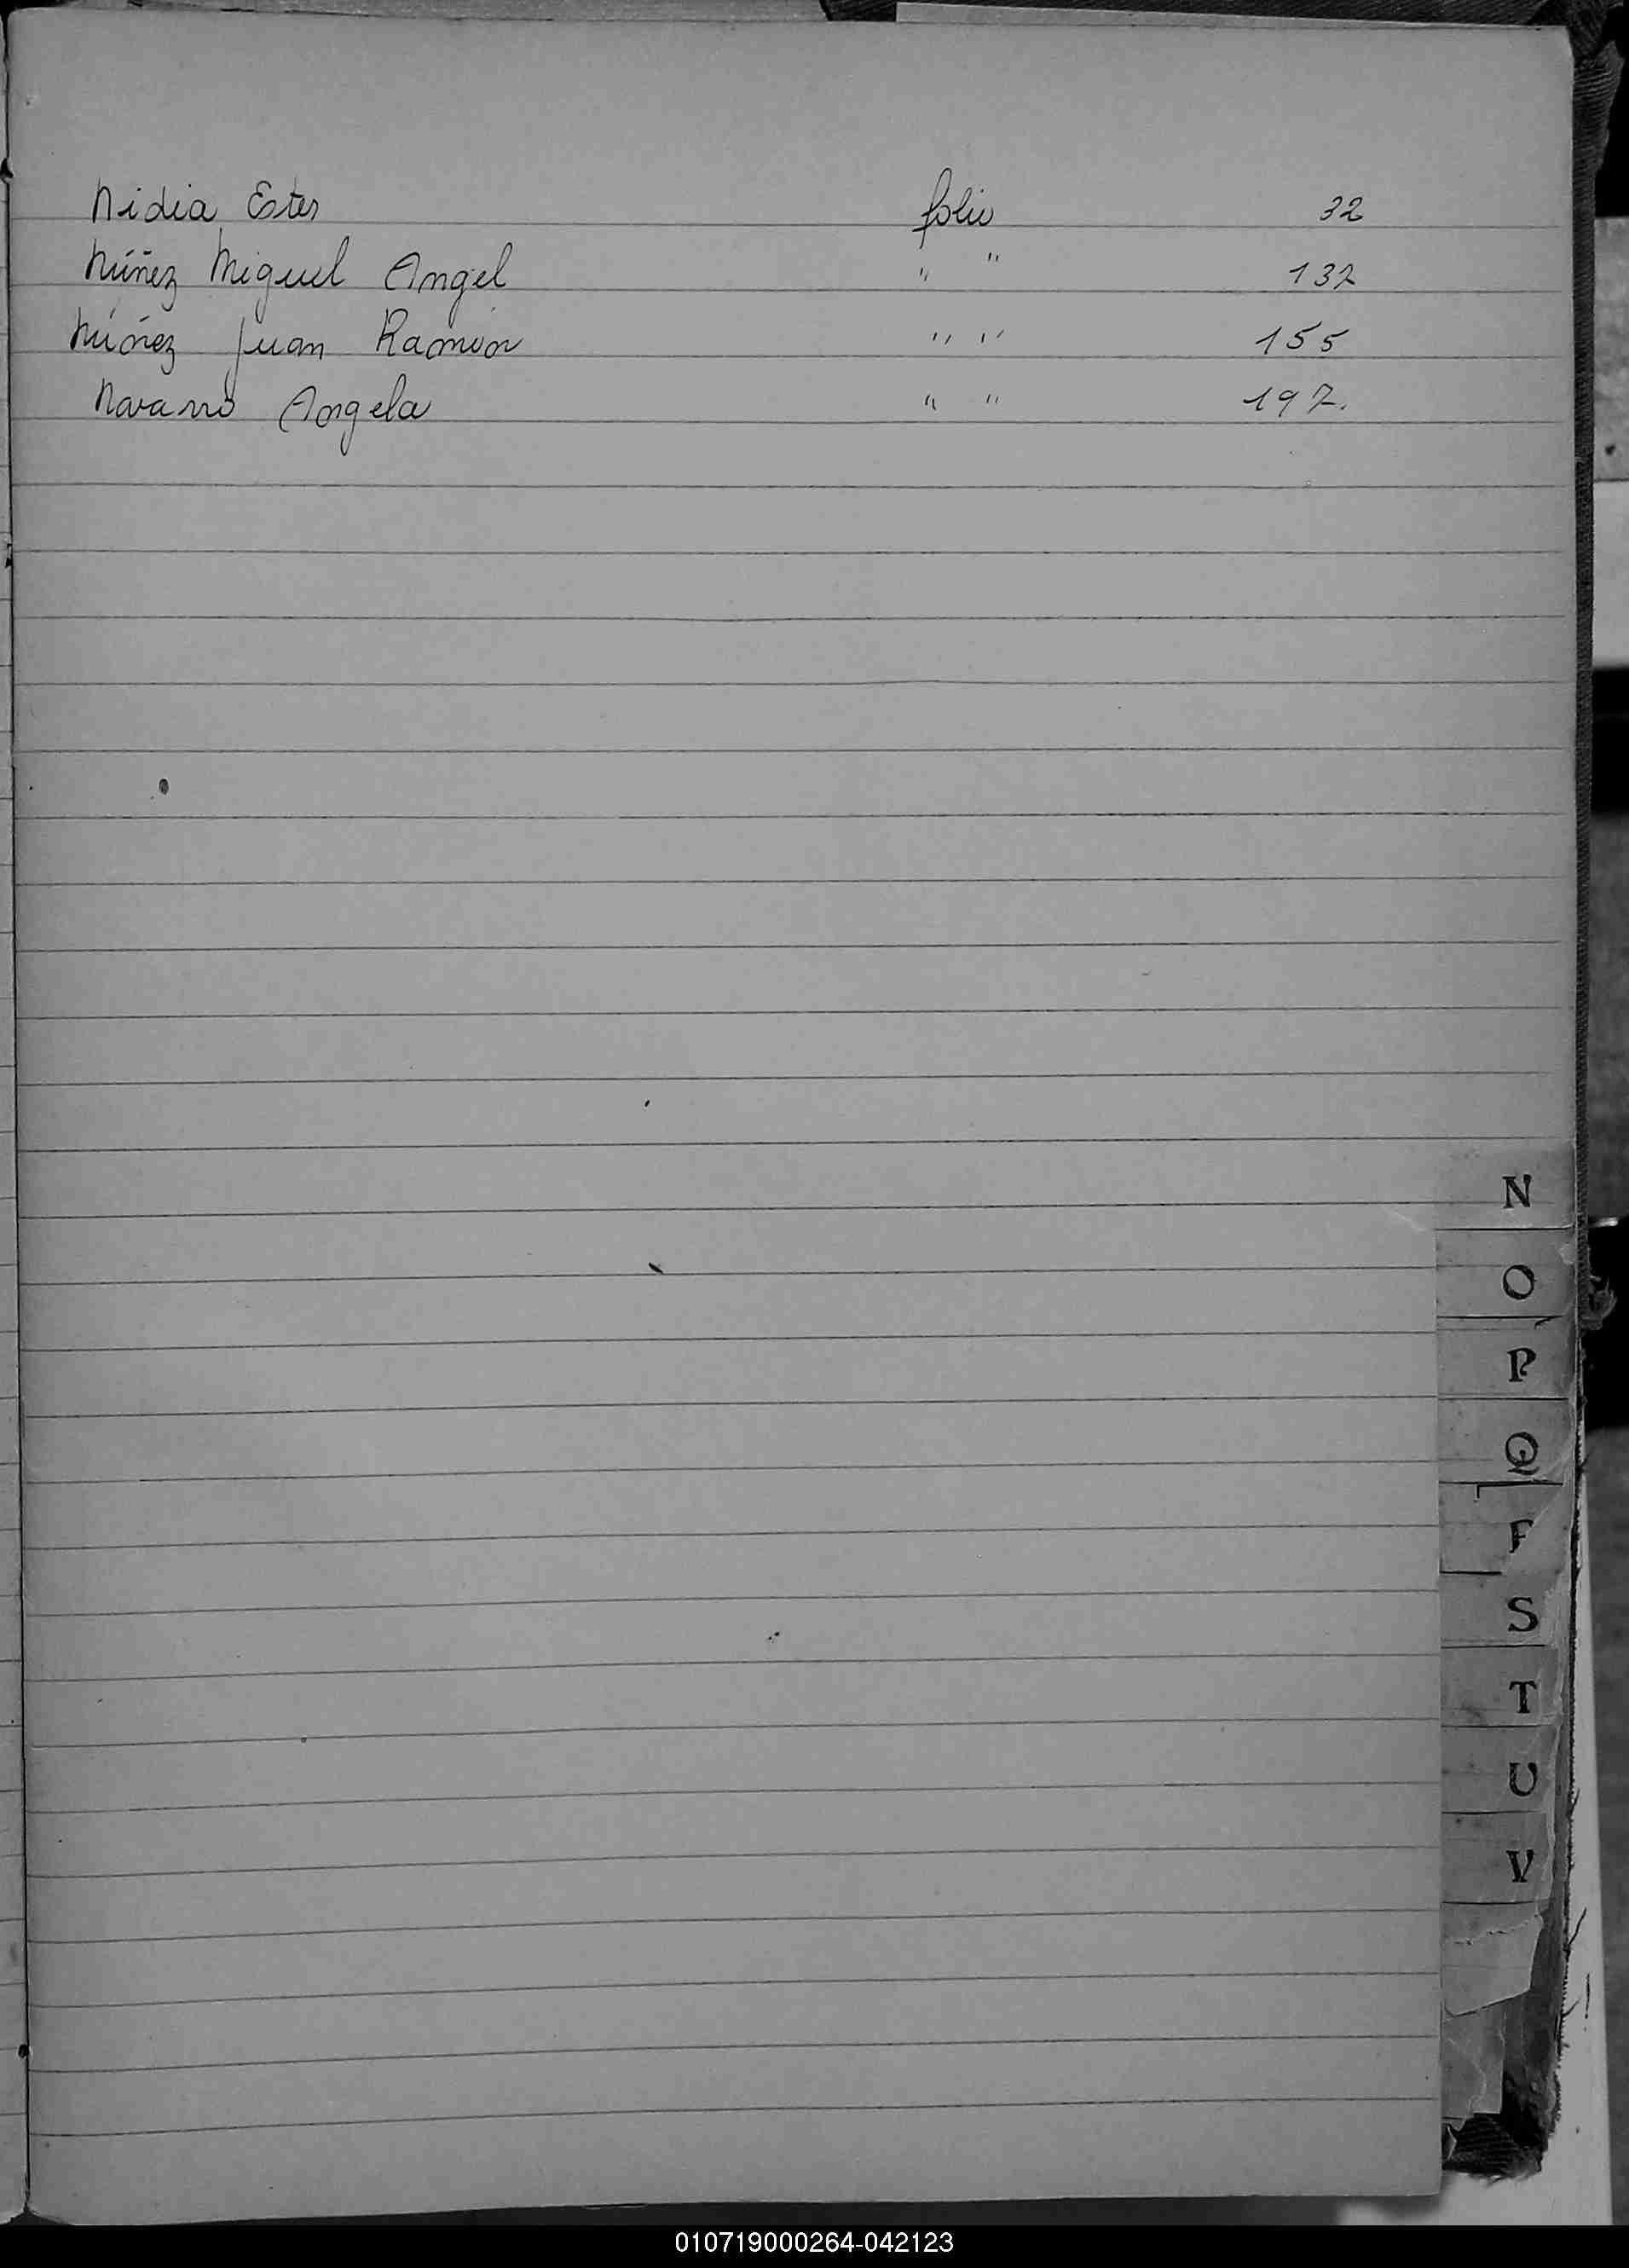 Nidia Ester folio 32
Núñez Miguel Angel " " 132
Núñez Juan Ramón " " 155
Navarro Angela " " 197.
N
O
P
Q
S
T
U
V
010719000264-042123